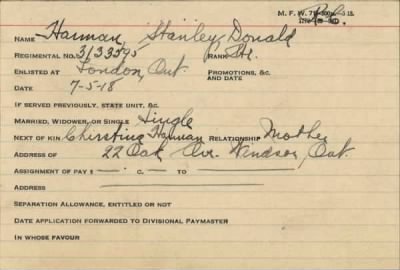 M. F. W. 71
NAME Harman, Stanley Donald
REGIMENTAL NO. 3133595 RANK Pte.
ENLISTED AT London Ont PROMOTIONS, &C. AND DATE
DATE 7-5-18
IF SERVED PREVIOUSLY, STATE UNIT, &C.
MARRIED, WIDOWER, OR SINGLE Single
NEXT OF KIN Harman RELATIONSHIP Mother
ADDRESS OF 22 Oak Ave. Windsor, Ont.
ASSIGNMENT OF PAY $ — : C. — TO
ADDRESS
SEPARATION ALLOWANCE, ENTITLED OR NOT
DATE APPLICATION FORWARDED TO DIVISIONAL PAYMASTER
IN WHOSE FAVOUR